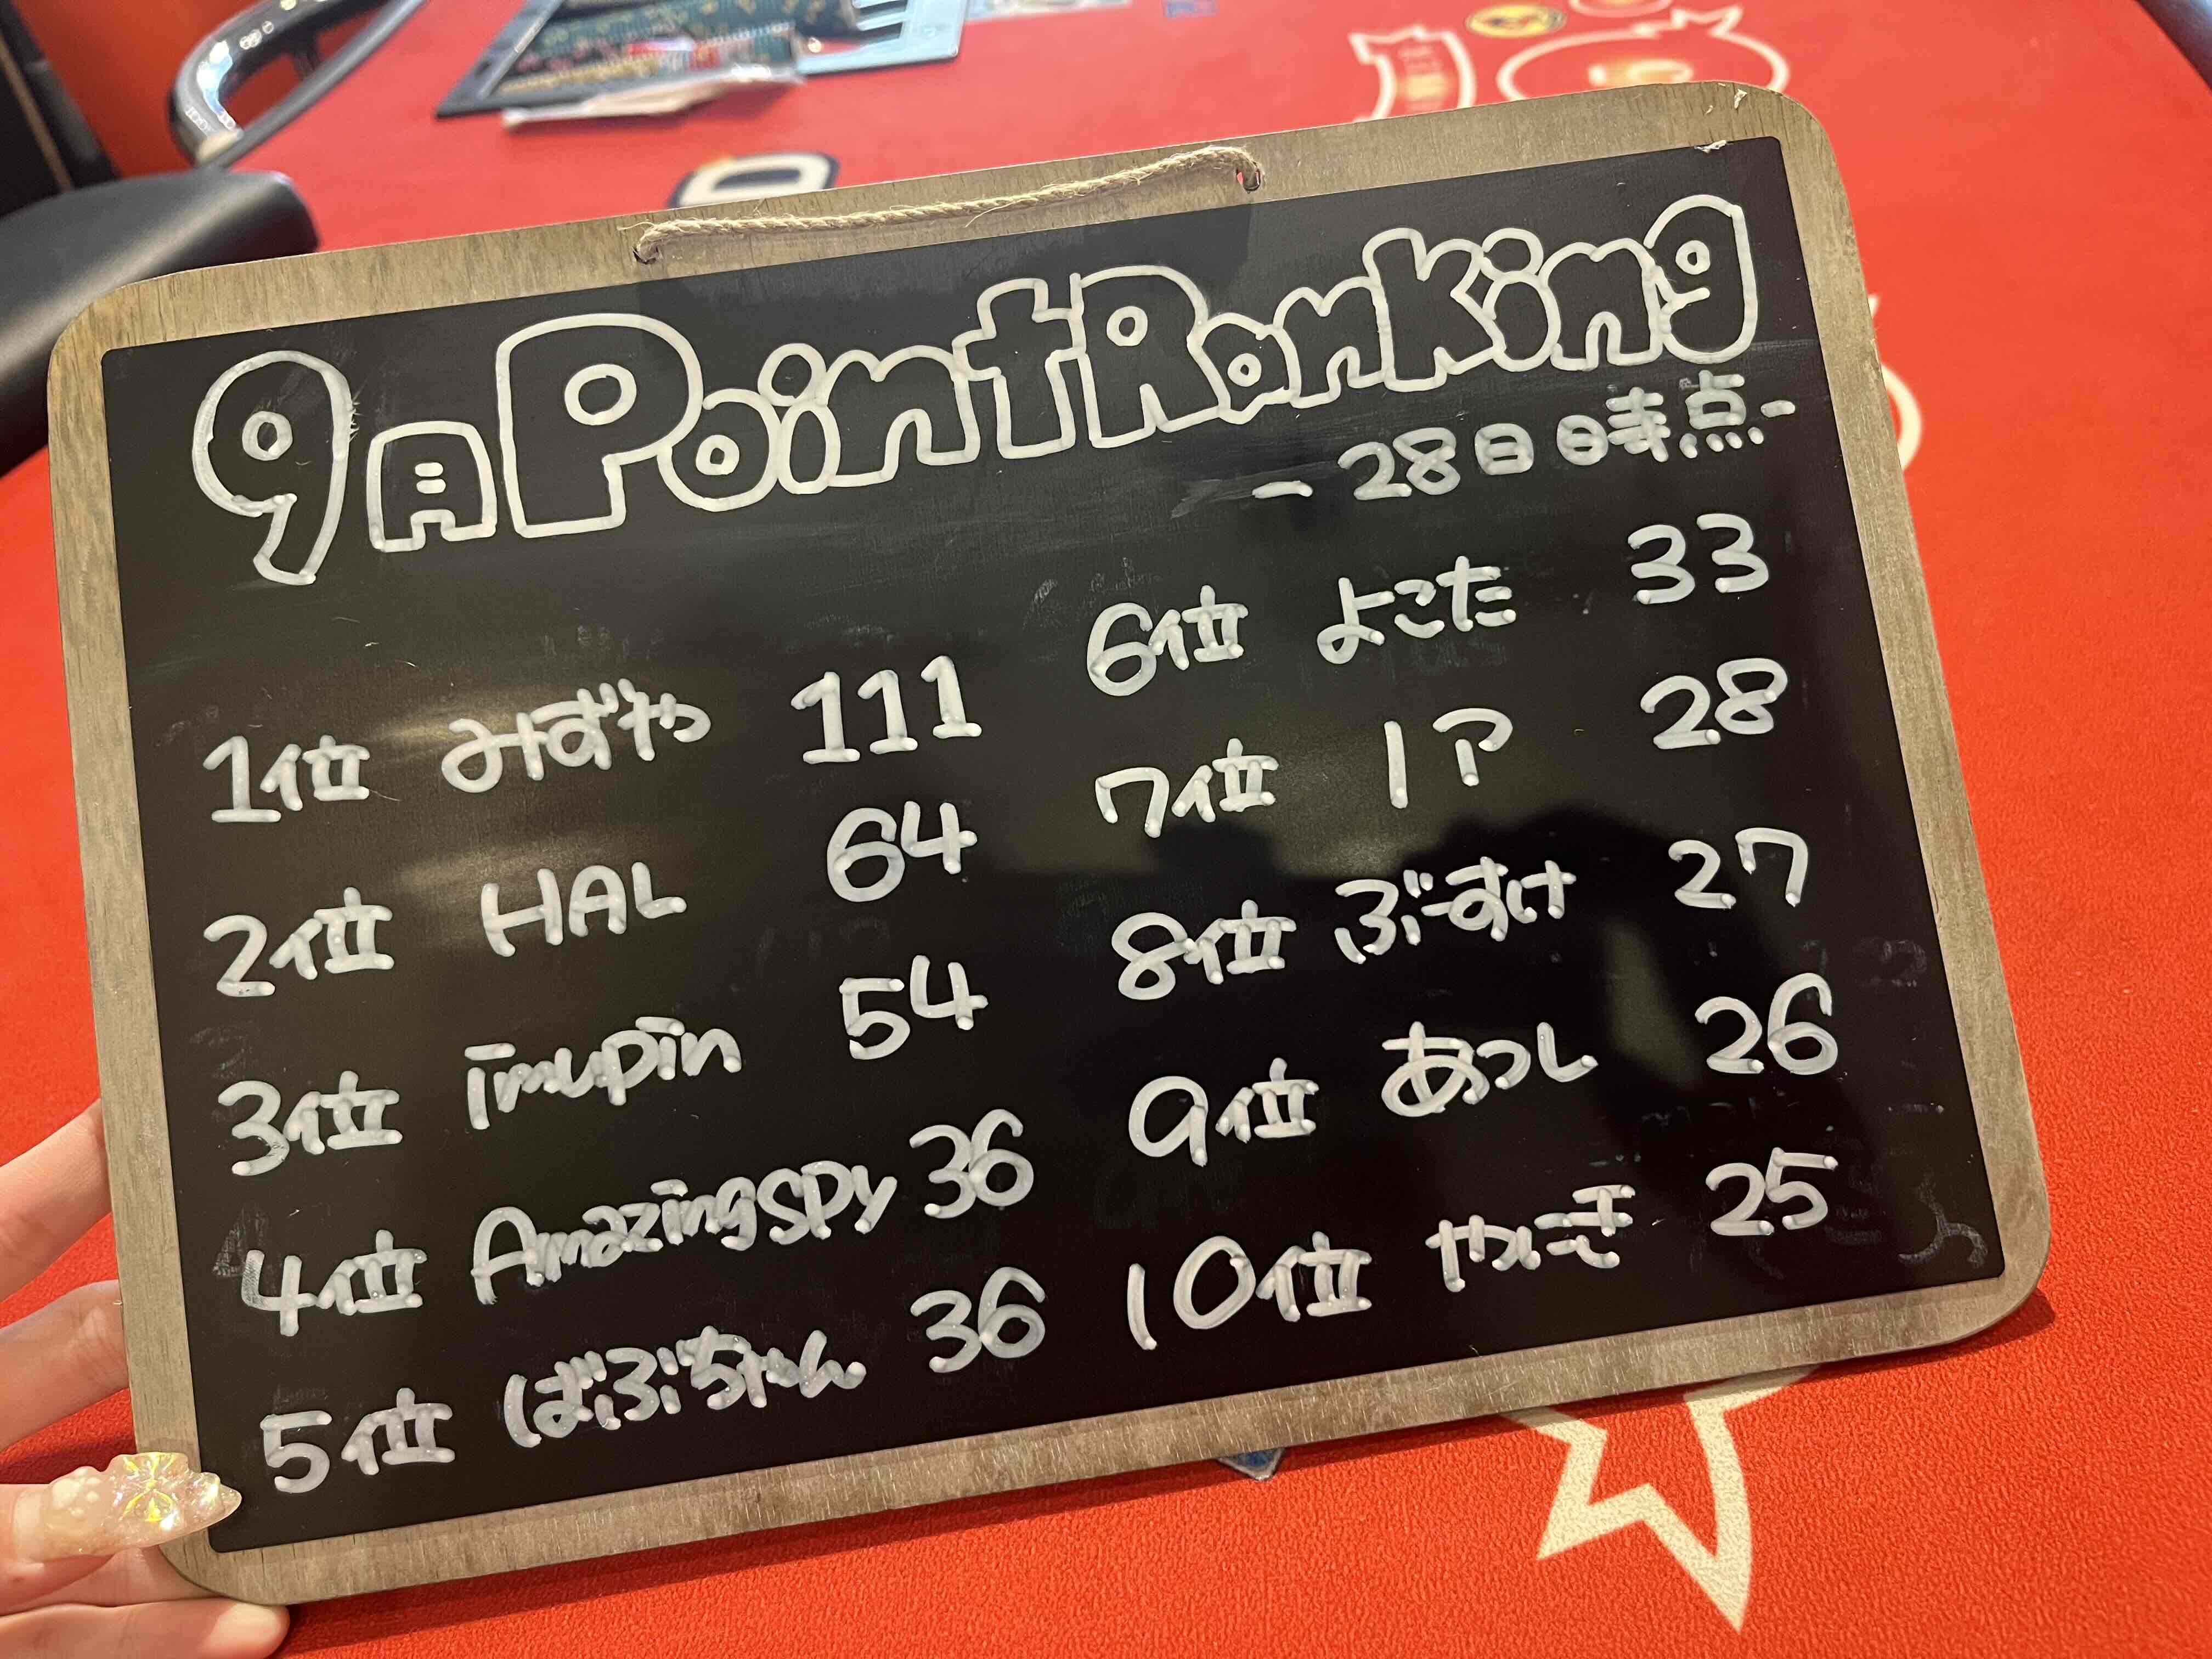 9月 Point Ranking
- 28日時点 -
1位 みずやっ 111
2位 HAL 64
3位 imupin 54
4位 Amazingspy 36
5位 ばぶちゃん 36
6位 よこた 33
7位 1ア 28
8位 ぶーすけ 27
9位 あつし 26
10位 25